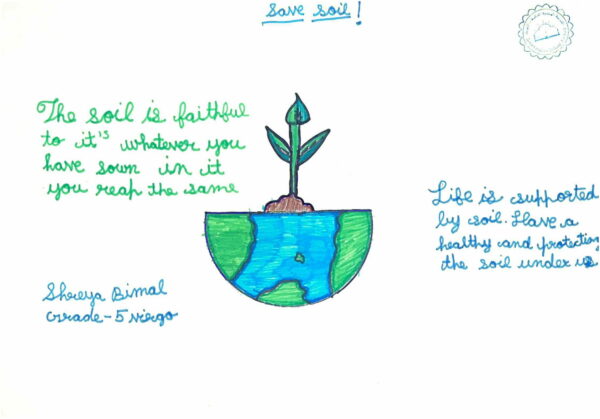 Save soil!
The soil is faithful
to it's whatever you
have sown in it
you reap the same
Life is supported
by soil. Have a
healthy and protecting
the soil under us
Shreya Bimal
Grade-5 virgo